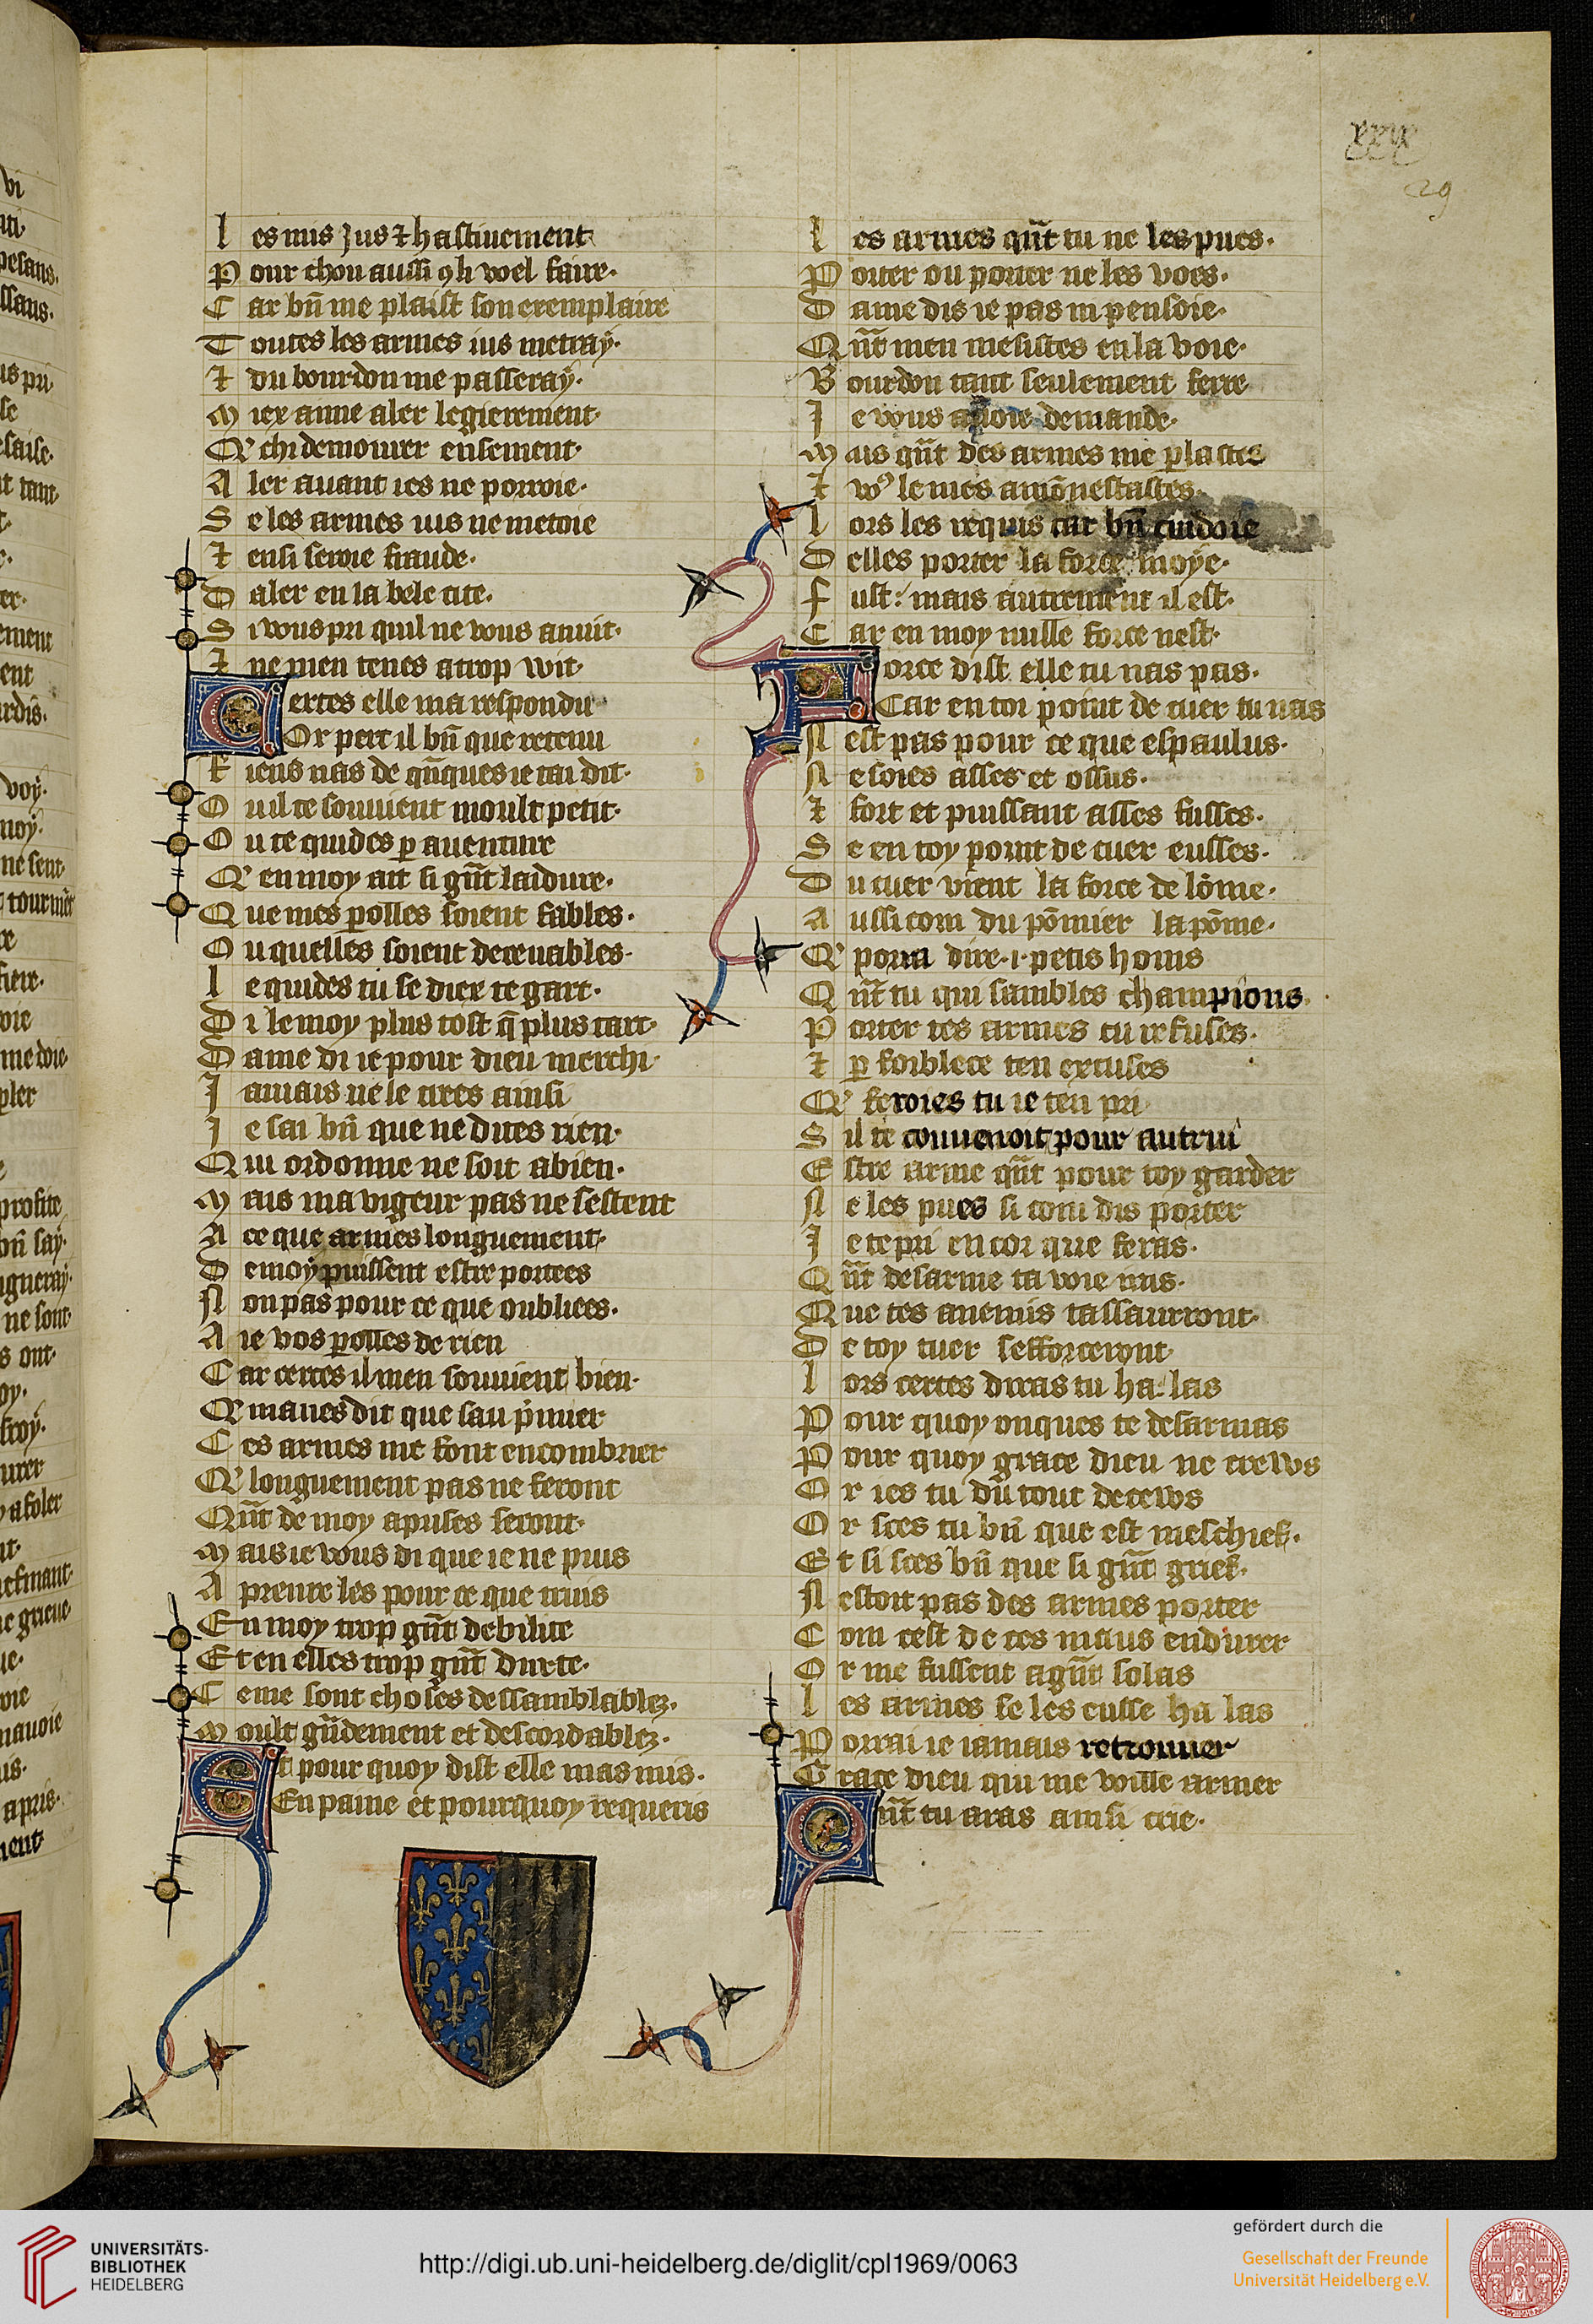 xxix
29
les mis jus ⁊ hastiuement
Pour chou aussi ꝯ li wel faire·
Car bn̄ me plaist son exemplaire
Toutes les armes ius metray·
⁊ du bourdon me passeray·
Miex aime aler legierement·
Q' chi demourer ensement·
Aler auant ies ne porroie·
Se les armes ius ne metoie
⁊ ensi seroie fraude·
Daler en la bele cite·
Si vous pri quil ne vous anuit·
⁊ ne men tenes a trop wit·
Certes elle ma respondu
Or pert il bn̄ que retenu
Riens nas de qn̄ques ie tai dit·
Ou il te souuient moult petit·
Ou te quides ꝑ auenture
Q' en moy ait si gn̄t laidure·
Que mes ꝑolles soient fables·
Ou quelles soient deceuables·
le quides tu se diex te gart·
Di le moy plus tost q̄ plus tart·
Dame di ie pour dieu merchi·
Iamais ne le cires ainsi
Ie sai bn̄ que ne dites rien·
Qui ordonne ne soit a bien·
Mais ma vigeur pas ne sestent
A ce que armes longuement·
De moy puissent estre portees
Non pas pour ce que oubliees·
Aie vos ꝑolles de rien
Car certes il men souuient bien·
Q' maues dit que sau p̄mier
Ces armes me font encombrier
Q' longuement pas ne feront
Qn̄t de moy apuses seront·
Mais ie vous di que ie ne puis
Aprenre les pour ce que truis
En moy trop gn̄t debilite
Et en elles trop gn̄t durte·
Ceme sont choses dessamblablez·
Moult gn̄dement et descordablez·
Et pour quoy dist elle mas mis·
En paine et pourquoy requeris
les armes qn̄t tu ne les pues·
Porter ou porter ne les voes·
Dame dis ie pas ni pensoie·
Qn̄t men mesistes en la voie·
Bourdon tant seulement ferre
Ie vous auoie demande·
Mais qn̄t des armes me ꝑlastes
⁊ vꝰ le mes amōnestastes·
lors les requis car bn̄ cuidoie
Delles porter la force moye·
fust: mais autrement il est·
Car en moy nulle force nest·
Force dist elle tu nas pas·
Car en toi point de cuer tu nas
Nest pas pour ce que espaulus·
Ne soies asses et ossus·
⁊ fort et puissant asses fusses·
Se en toy point de cuer eusses·
Du cuer vient la force de lōme·
Aussi com du pōmier la pōme·
Q' porra dire·i·petis homs
Qn̄t tu qui sambles champions·
Porter tes armes tu refuses·
⁊ ꝑ foiblece ten excuses
Q' feroies tu ie ten pri
Sil te conuenoit pour autrui
Estre arme qn̄t pour toy garder
Ne les pues si com dis porter
Ie te pri encor que feras·
Qn̄t desarme ta voie iras·
Que tes anemis tassaurront·
De toy tuer sefforceront
lors certes diras tu ha: las
Pour quoy onques te desarmas
Pour quoy grace dieu ne crews
Or ies tu du tout decews
Or sces tu bn̄ que est meschief·
Et si sces bn̄ que si gn̄t grief·
Nestoit pas des armes porter
Com cest de ces maus endurer
Or me fussent a gn̄t solas
les armes se les eusse ha las
Porrai ie iamais retrouuer
Grace dieu qui me wille armer
Qn̄t tu aras ainsi crie·
UNIVERSITÄTS-
BIBLIOTHEK
HEIDELBERG
http://digi.ub.uni-heidelberg.de/diglit/cpl1969/0063
gefördert durch die
Gesellschaft der Freunde
Universität Heidelberg e.V.